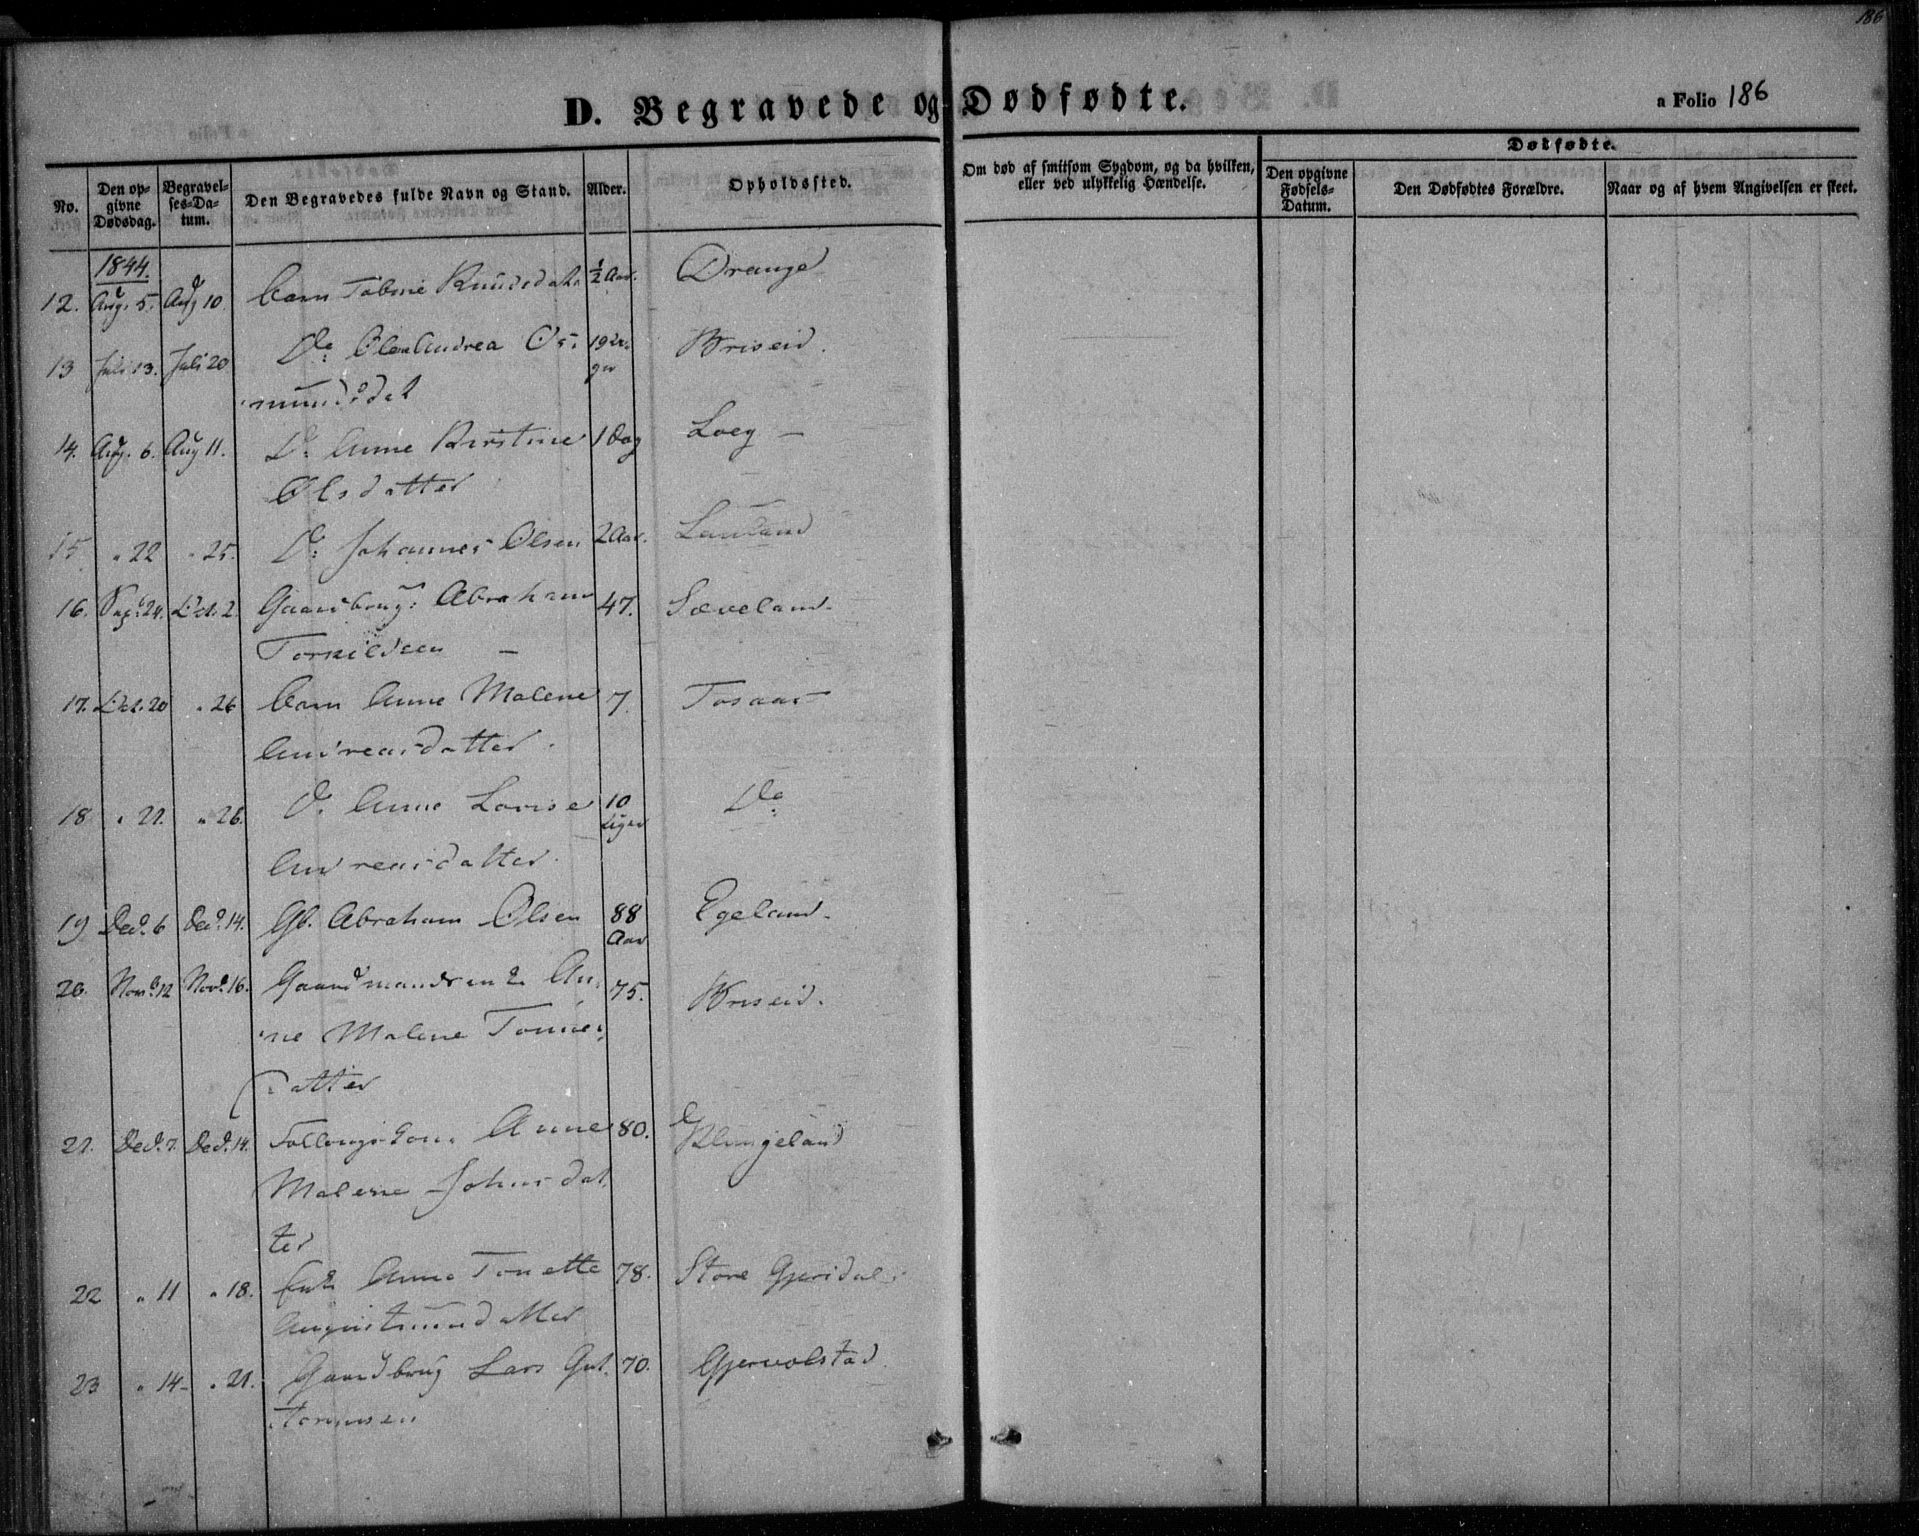 186
D. Begravede og Dødfødte.
a Folio 186
No.
Den op-
givne
Dødsdag.
Begravel-
ses-Da-
tum.
Den Begravedes fulde Navn og Stand.
Alder.
Opholdssted.
Om død af smitsom Sygdom, og da hvilken,
eller ved ulykkelig Hændelse.
Dødfødte.
Den opgivne
Fødsels-
Datum.
Den Dødfødtes Forældre.
Naar og af hvem Angivelsen er skeet.
1844.
12. Aug. 5. Aug 10 barn Tobine Knudsdat. ½ Aar. Drange
13 Juli 13. Juli 20 Do: Ole Andrea Os: 19 Da- Briseid.
mundsdat ger
14. Aug. 6. Aug 11. Do: Anne Kirstine 1 Dag Loeg -
Olsdatter
15 " 22 " 25. Do: Johannes Olsen 2 Aar. Lauland
16. Sep. 24. Oct. 2. Gaardbrug: Abraham 47. Sæveland.
Torkildsen -
17. Oct. 20 " 26 barn Anne Malene 7 Tosaas
Andreasdatter.
18 " 21. " 26. Do. Anne Lovise 10 Do:
Uger
Andreasdatter.
19 Dec. 6 Dec. 14. Gb. Abraham Olsen 88 Egeland.
Aar
20. Nov. 12 Nov. 16. Gaardmandsenke An- 75. Briseid.
ne Malene Tønnes-
datter
21. Dec. 7. Dec. 14. Føllougskone Anne 80. Klungeland
Malene Johnsdat
ter
22 " 11 " 18. Enke Anne Tonette 78. Store Gjersdal
Augustmundatter
23 " 14 " 21. Gaardbrug Lars Gut 70. Gjervolstad.
tormsen